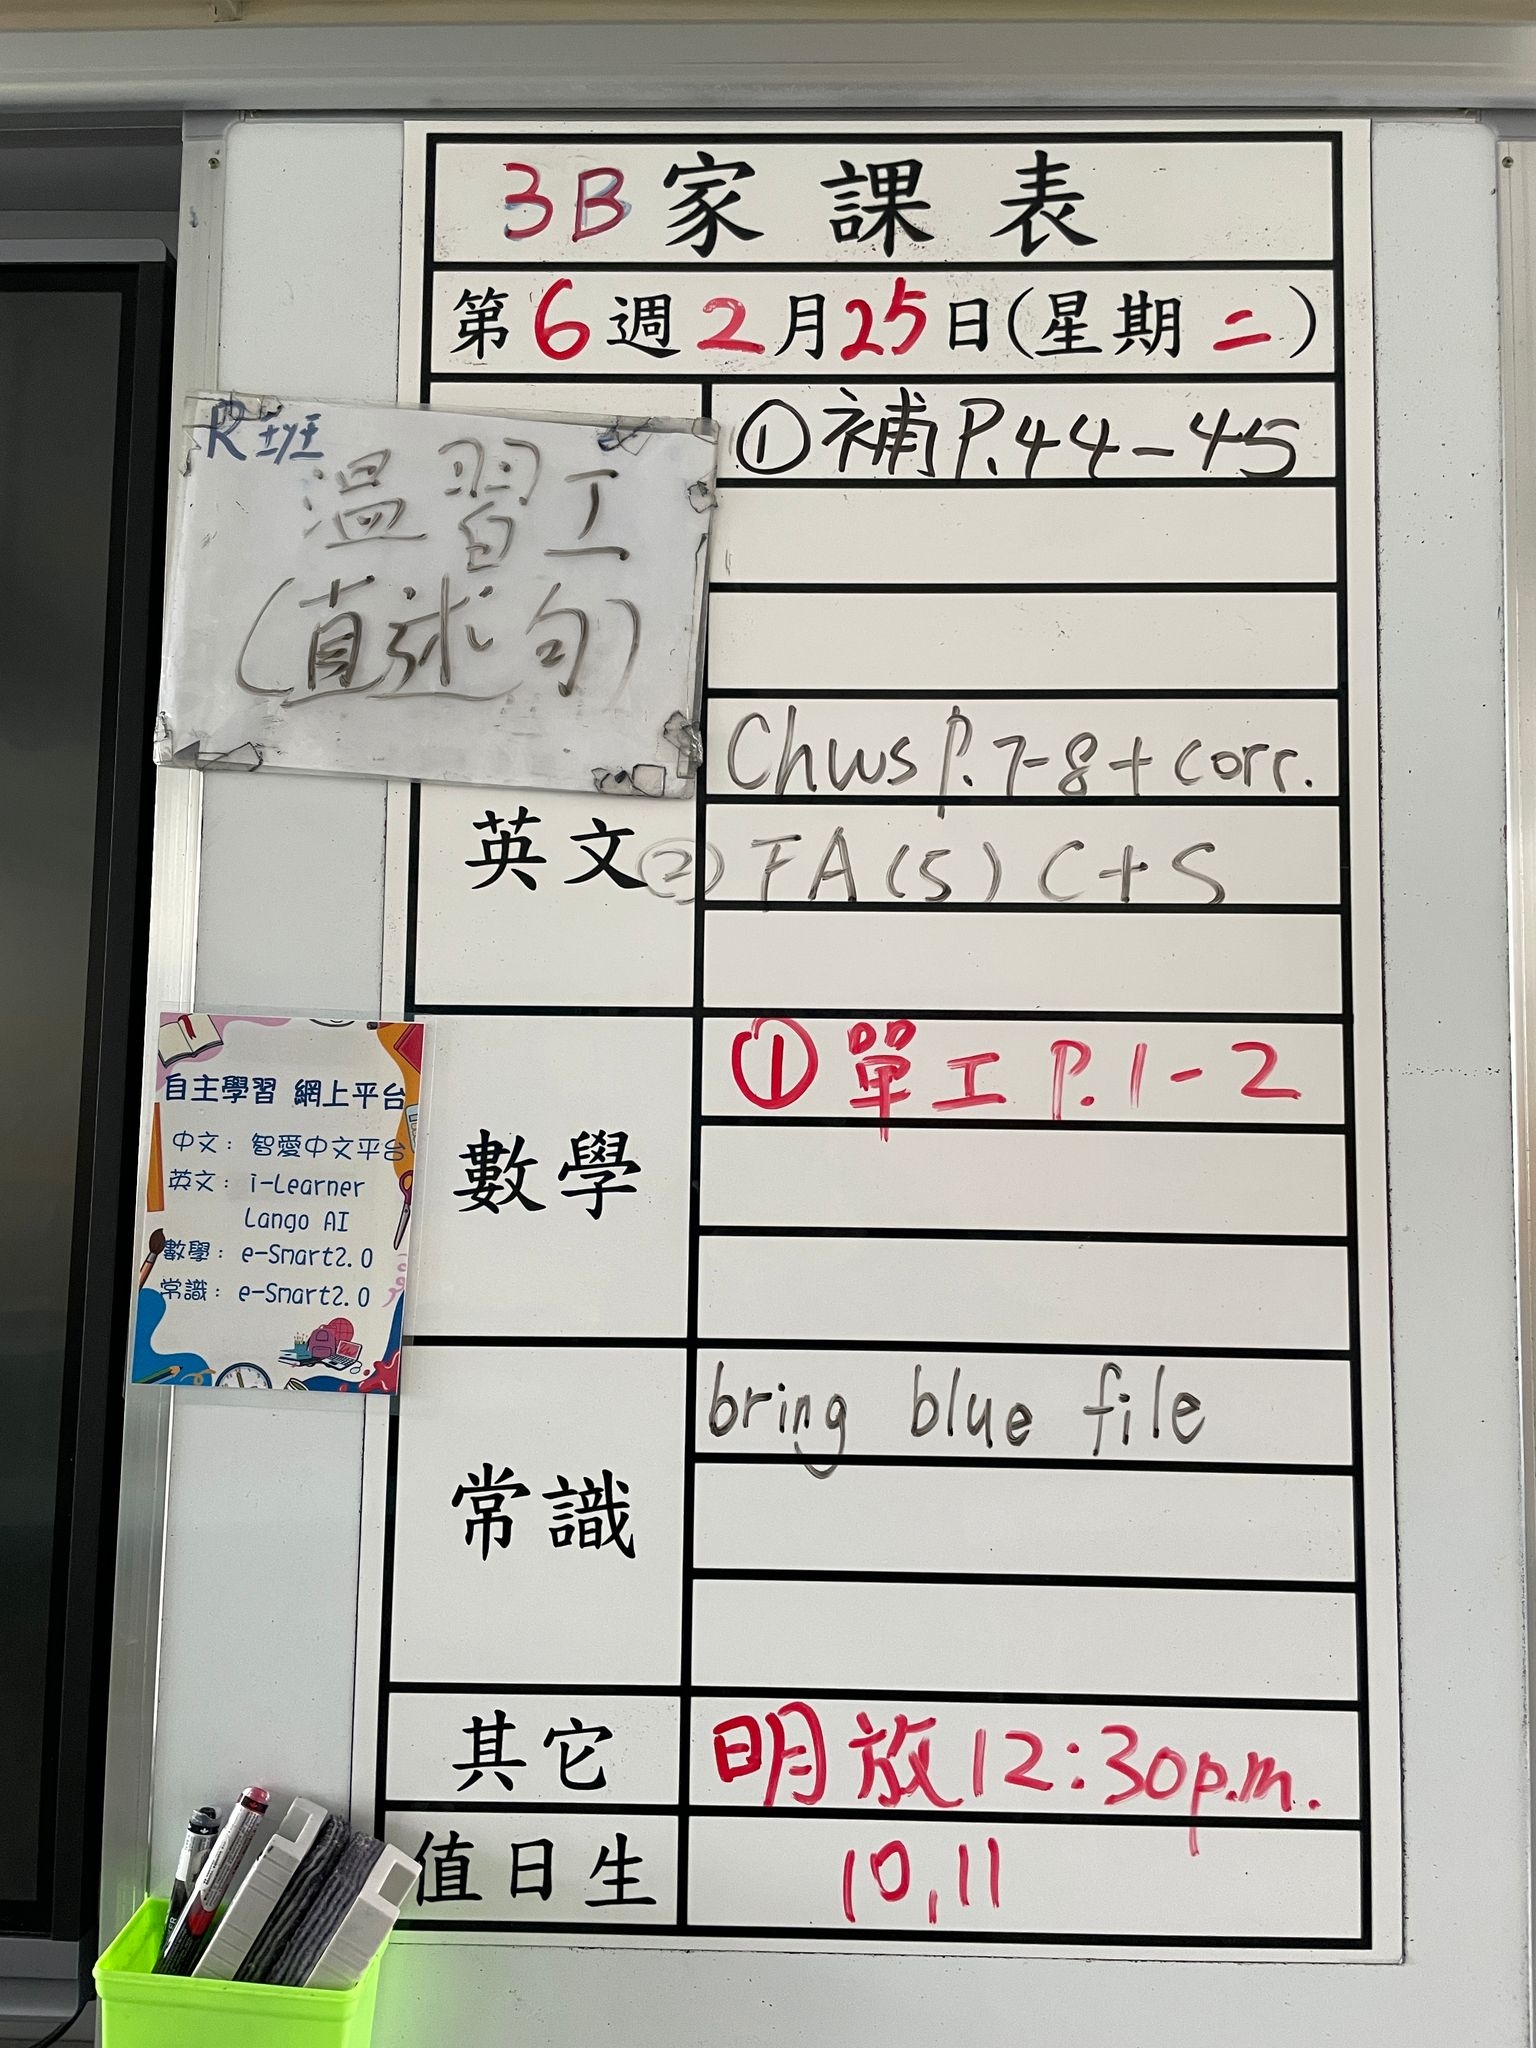 3B家課表
第6週2月25日(星期二)
①補P.44-45
R班
溫習工
(直述句)
Chws P.7-8+corr.
英文
②FA(5) C+S
數學
①單工P.1-2
自主學習 網上平台
中文：智愛中文平台
英文：i-Learner
Lango AI
數學：e-Smart2.0
常識：e-Smart2.0
常識
bring blue file
其它
明放12:30p.m.
值日生
10,11